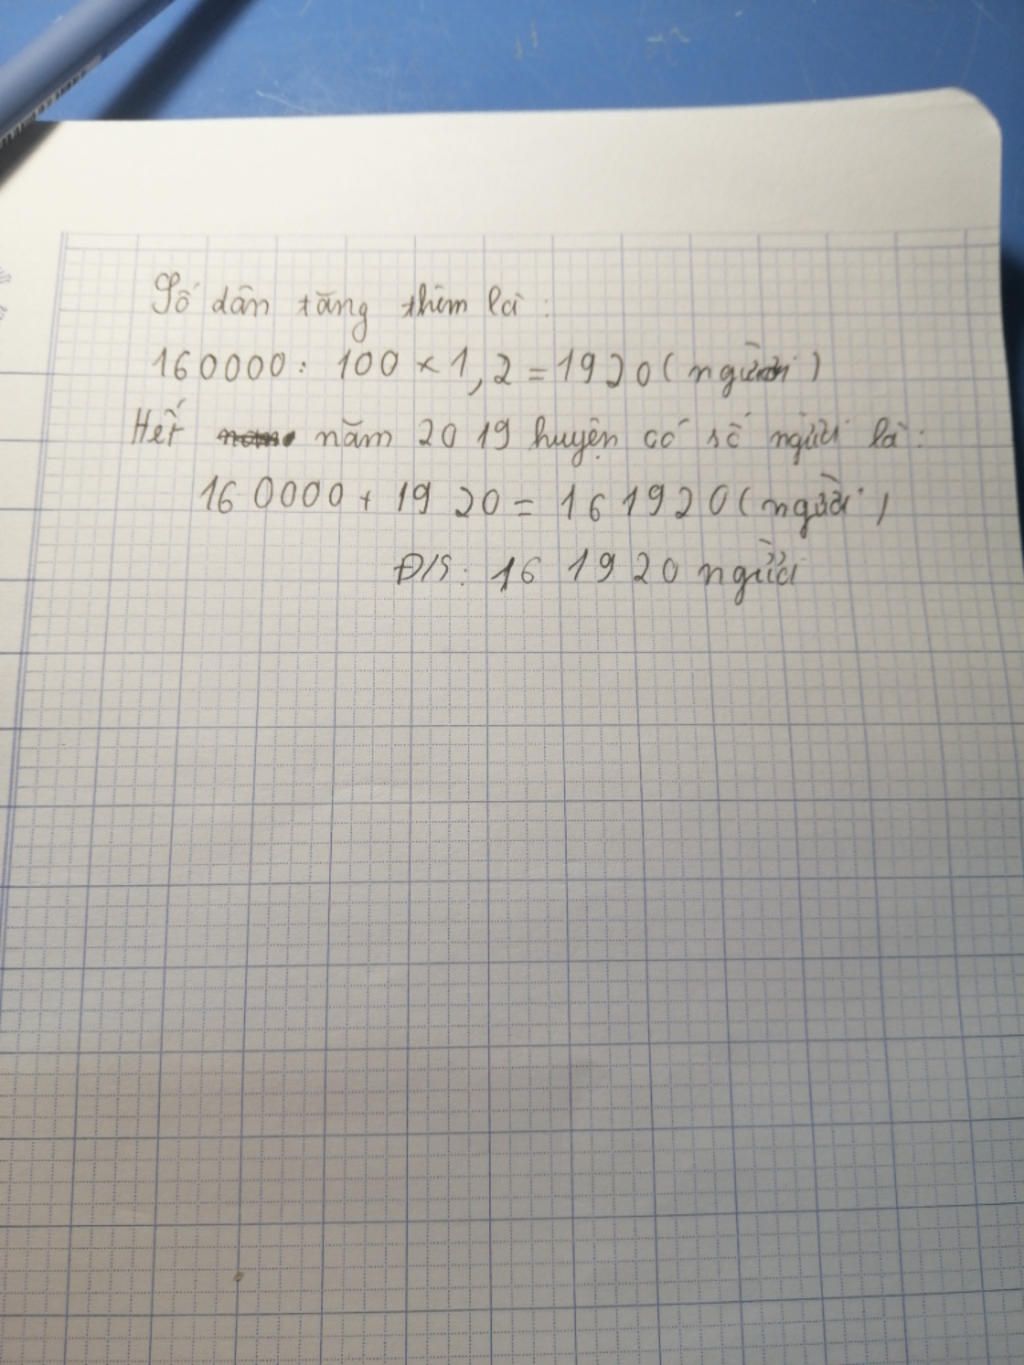 Số dân tăng thêm là:
160000: 100 × 1,2 = 1920 (người)
Hết năm 2019 huyện có số người là:
160000 + 1920 = 161920 (người)
Đ/S: 161920 người